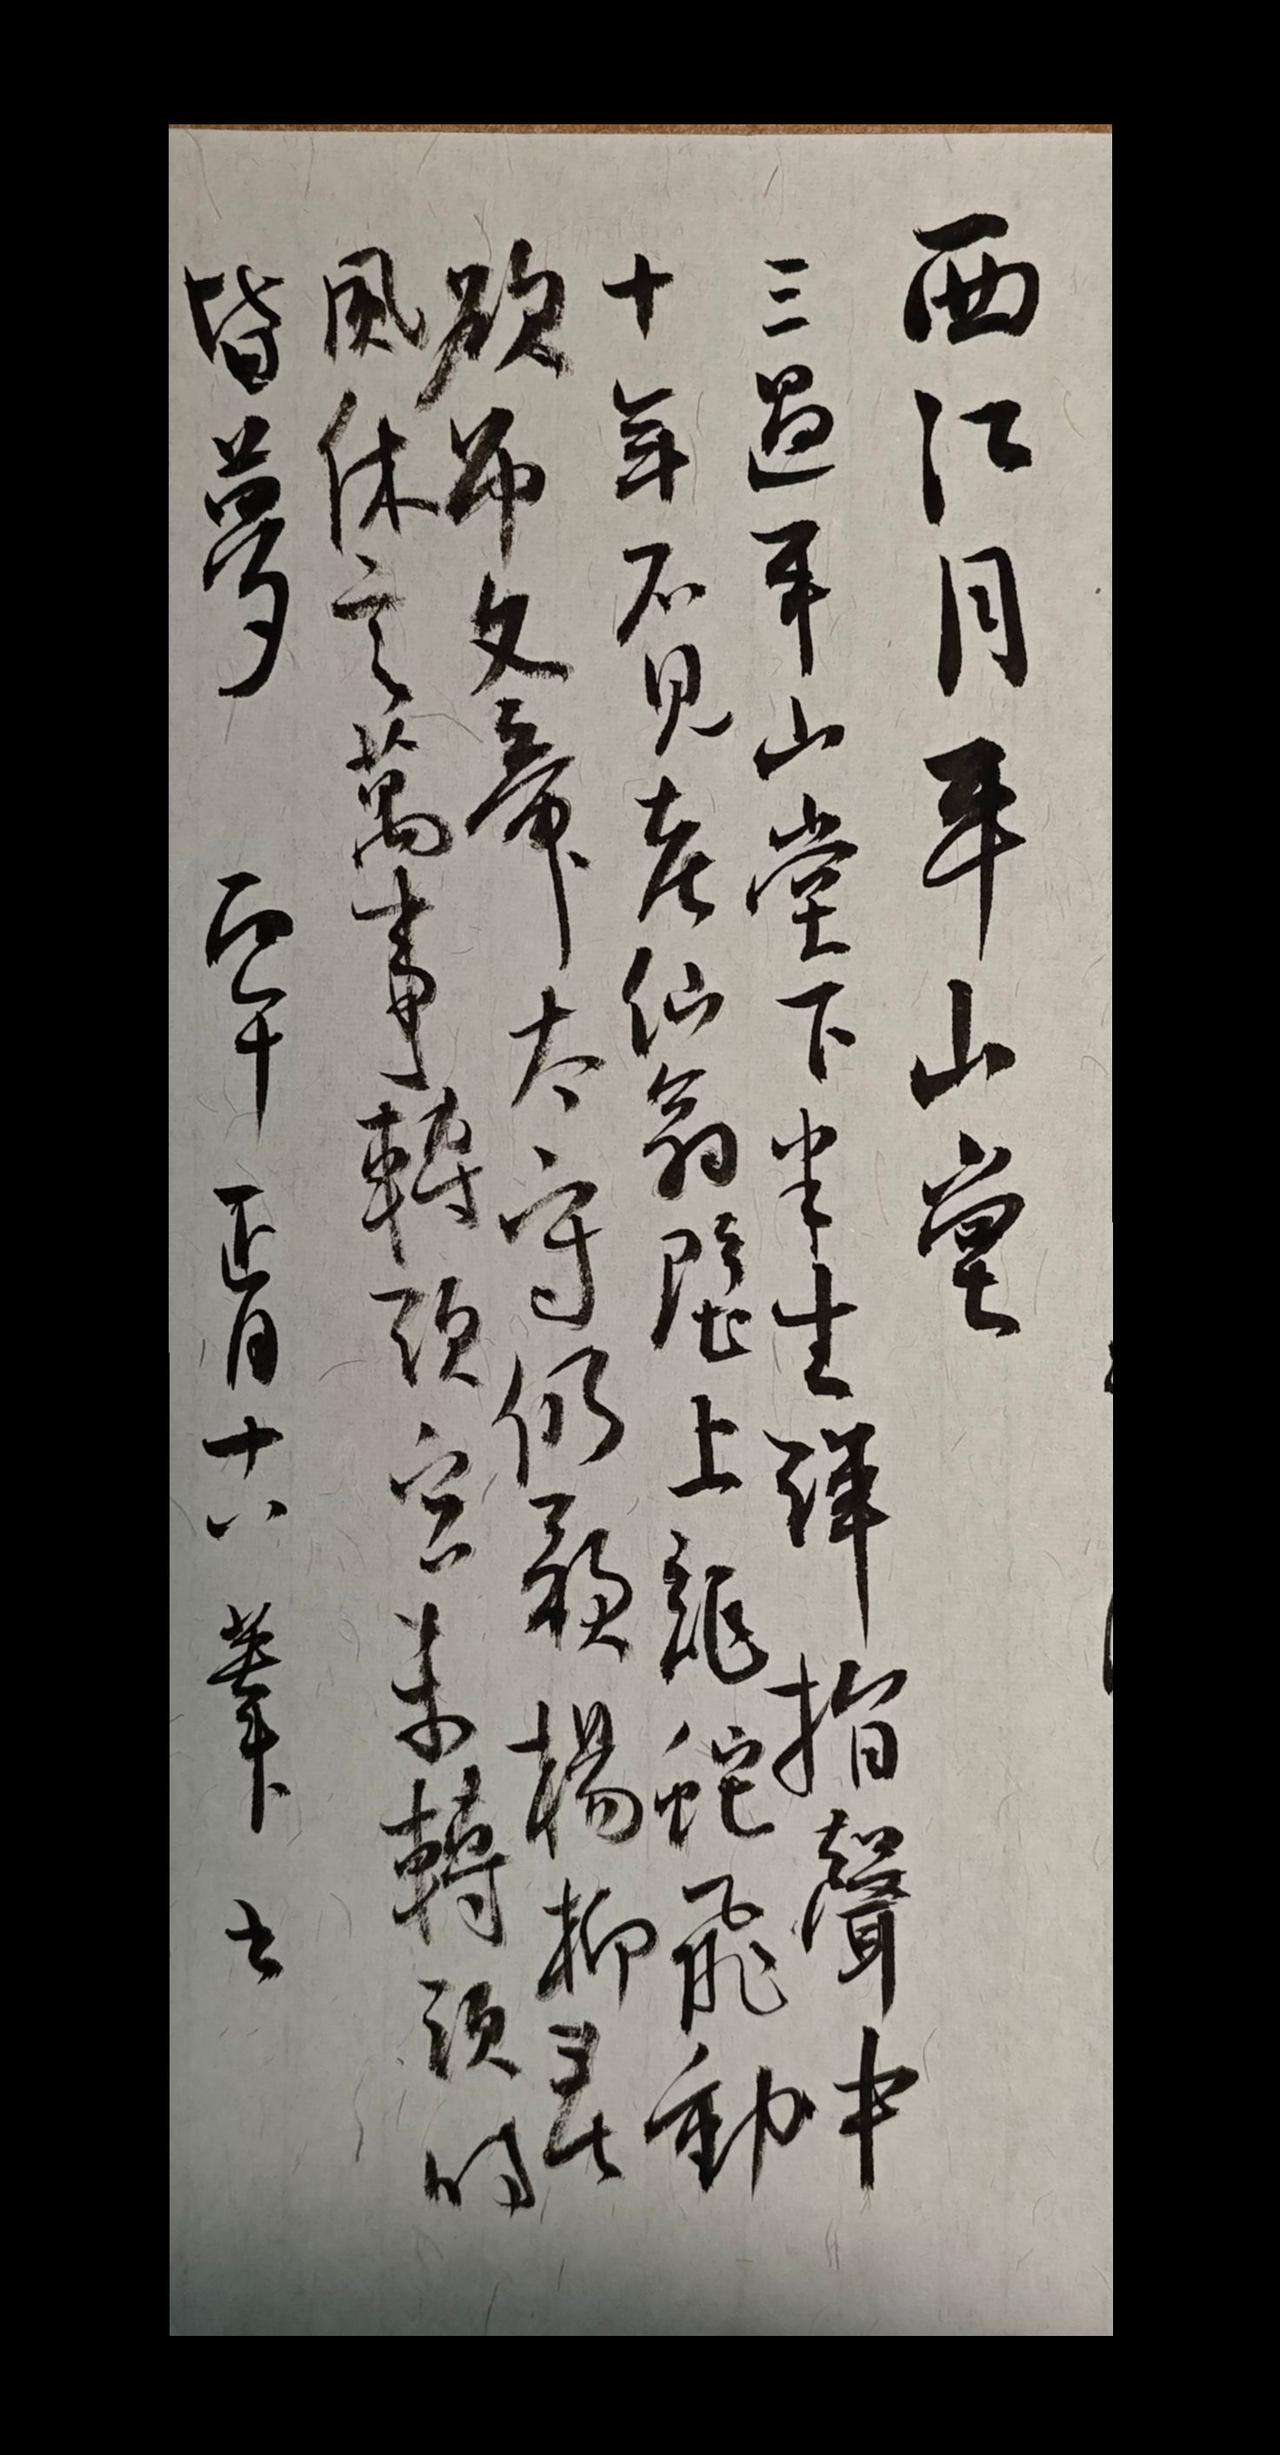 西江月平山堂
三過平山堂下半生彈指聲中
十年不見老仙翁壁上龍蛇飛動
欲吊文章太守仍歌楊柳春
風休言萬事轉頭空未轉頭時
皆夢 丙午 正月十六 書